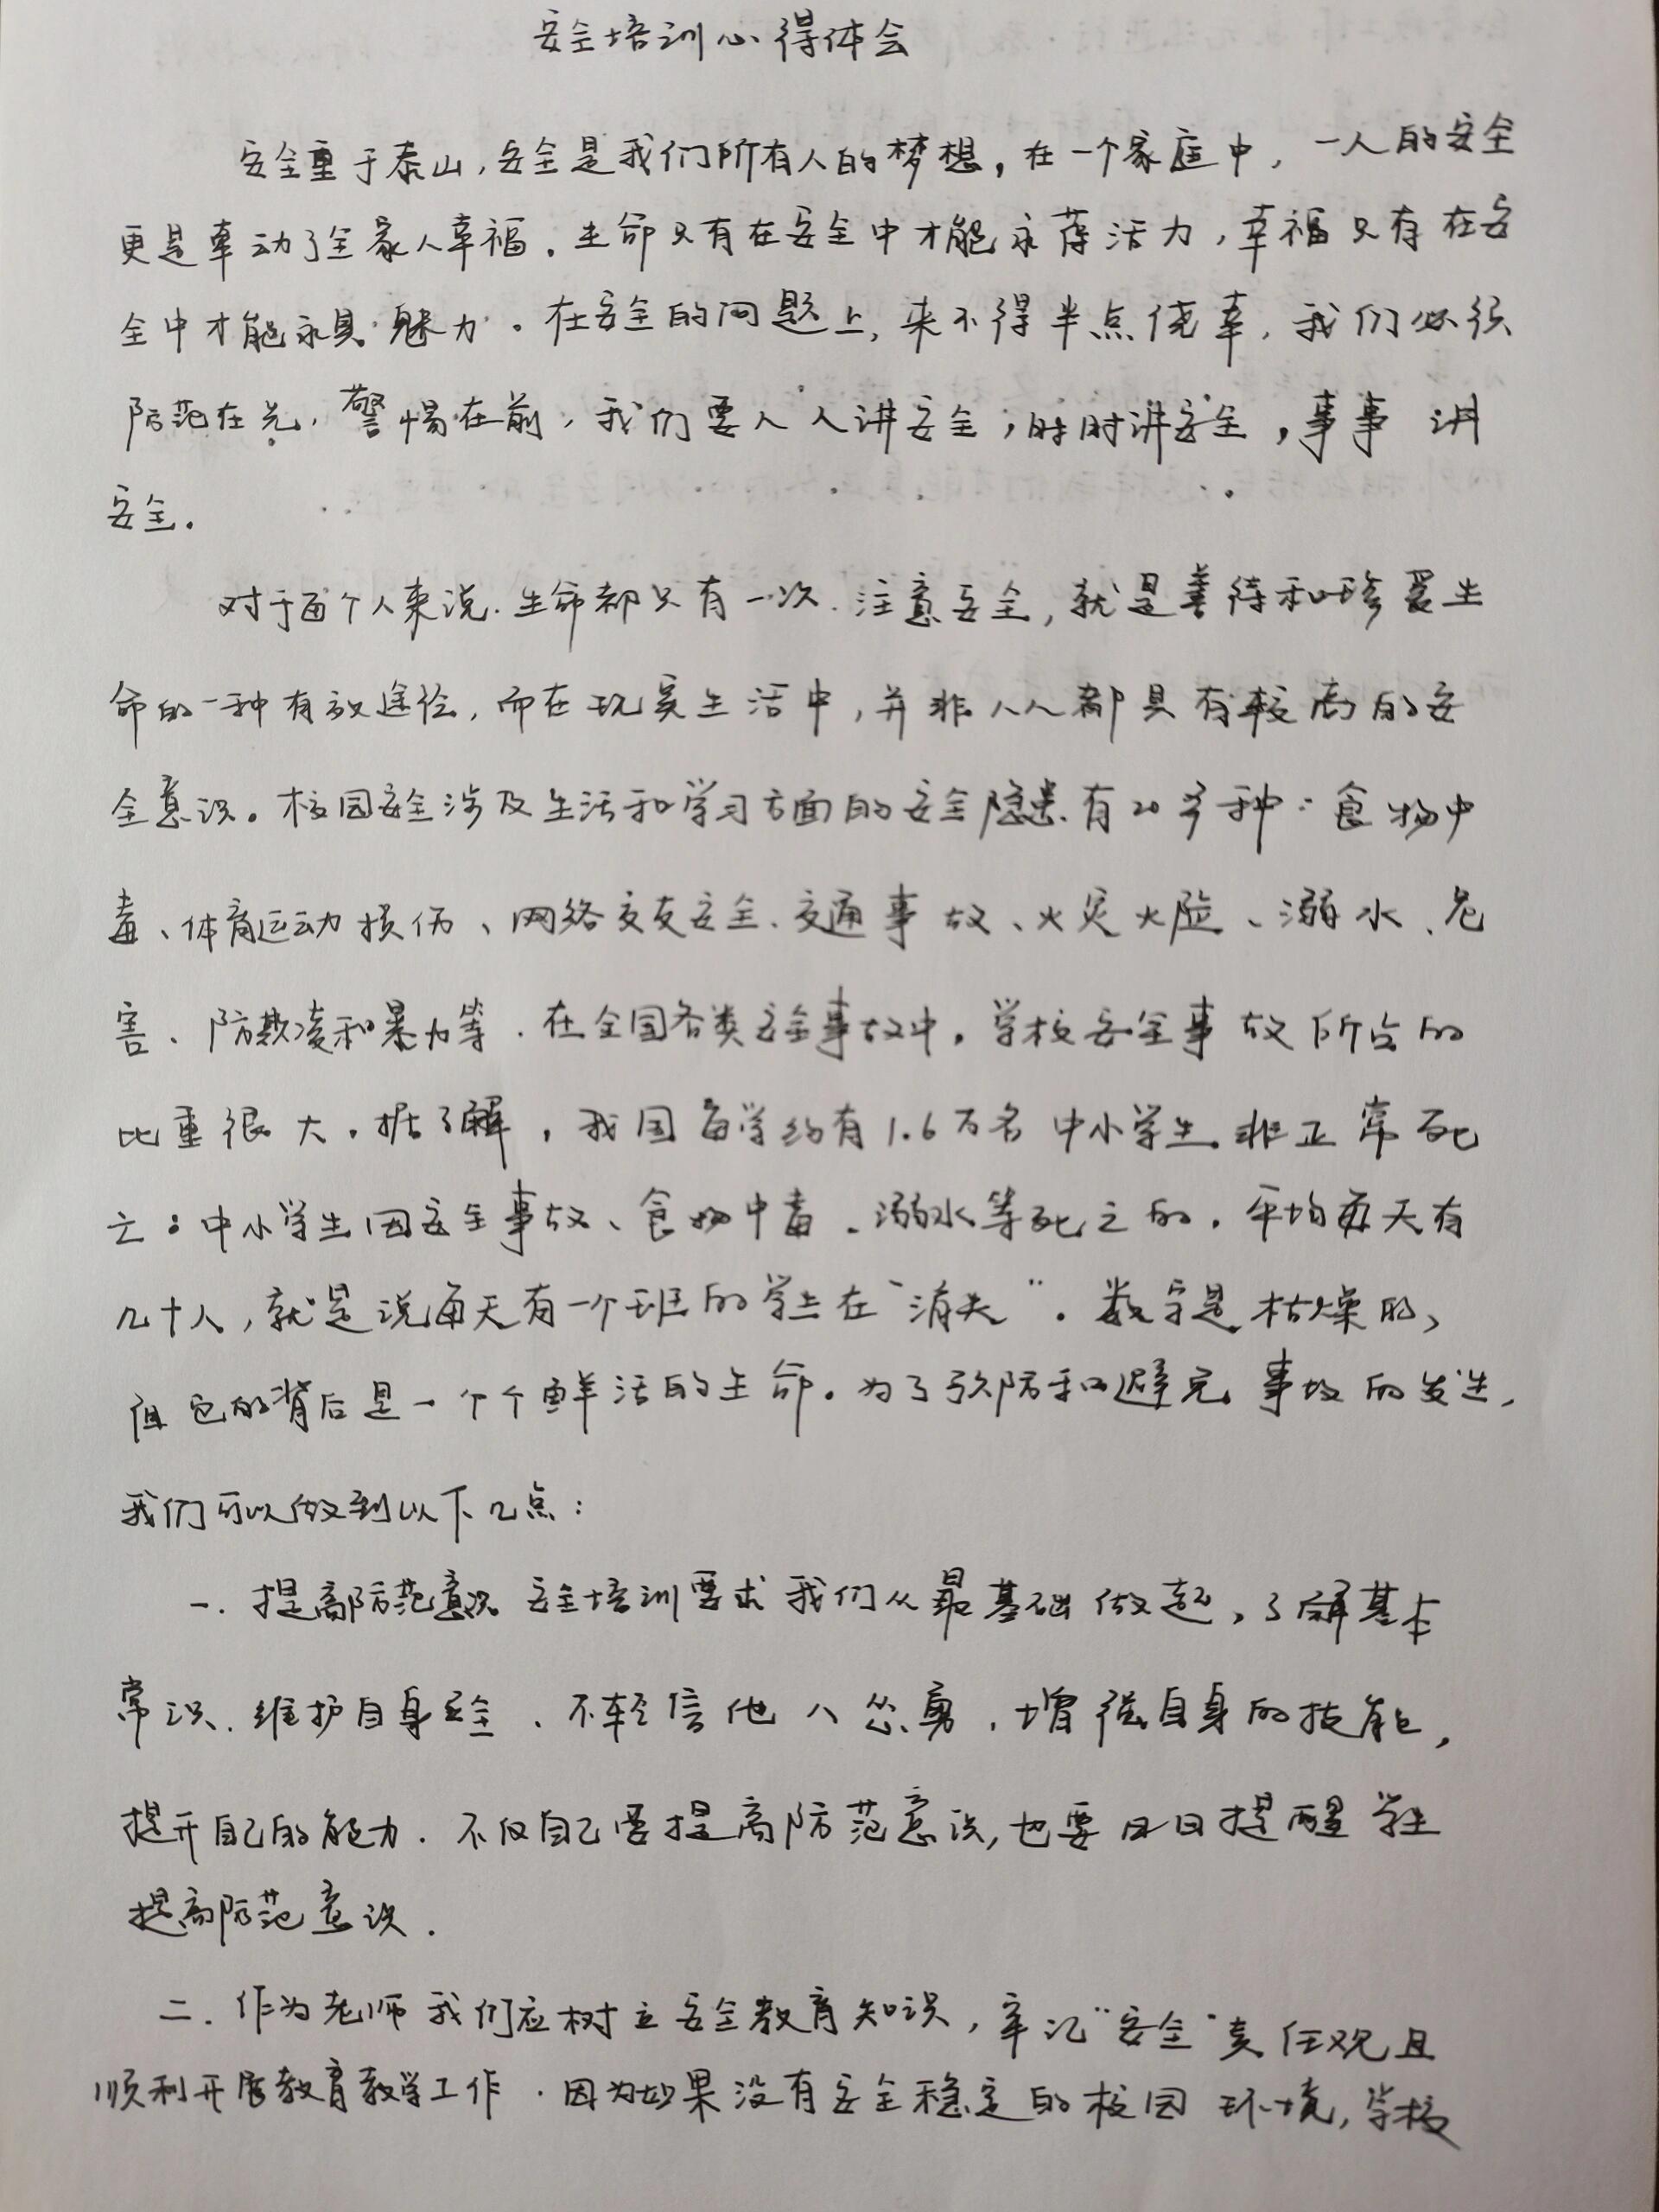 安全培训心得体会
安全重于泰山，安全是我们所有人的梦想，在一个家庭中，一人的安全
更是牵动了全家人幸福。生命只有在安全中才能永葆活力，幸福只有在安
全中才能永具魅力。在安全的问题上，来不得半点侥幸，我们必须
防范在先，警惕在前，我们要人人讲安全，时时讲安全，事事讲
安全。
对于每个人来说，生命都只有一次，注意安全，就是善待和珍爱生
命的一种有效途径，而在现实生活中，并非人人都具有较高的安
全意识。校园安全涉及生活和学习方面的安全隐患有20多种：食物中
毒、体育运动损伤、网络交友安全、交通事故、火灾火险、溺水、危
害、防欺凌和暴力等。在全国各类安全事故中，学校安全事故所占的
比重很大。据了解，我国每学约有1.6万名中小学生非正常死
亡：中小学生因安全事故、食物中毒、溺水等死亡的，平均每天有
几十人，就是说每天有一个班的学生在“消失”。数字是枯燥的，
但它的背后是一个个鲜活的生命。为了预防和避免事故的发生，
我们可以做到以下几点：
一.提高防范意识 安全培训要求我们从最基础做起，了解基本
常识、维护自身安全、不轻信他人怂恿，增强自身的技能，
提升自己的能力。不仅自己要提高防范意识，也要日日提醒学生
提高防范意识.
二.作为老师我们应树立安全教育知识，牢记“安全”责任观且
顺利开展教育教学工作.因为如果没有安全稳定的校园环境，学校